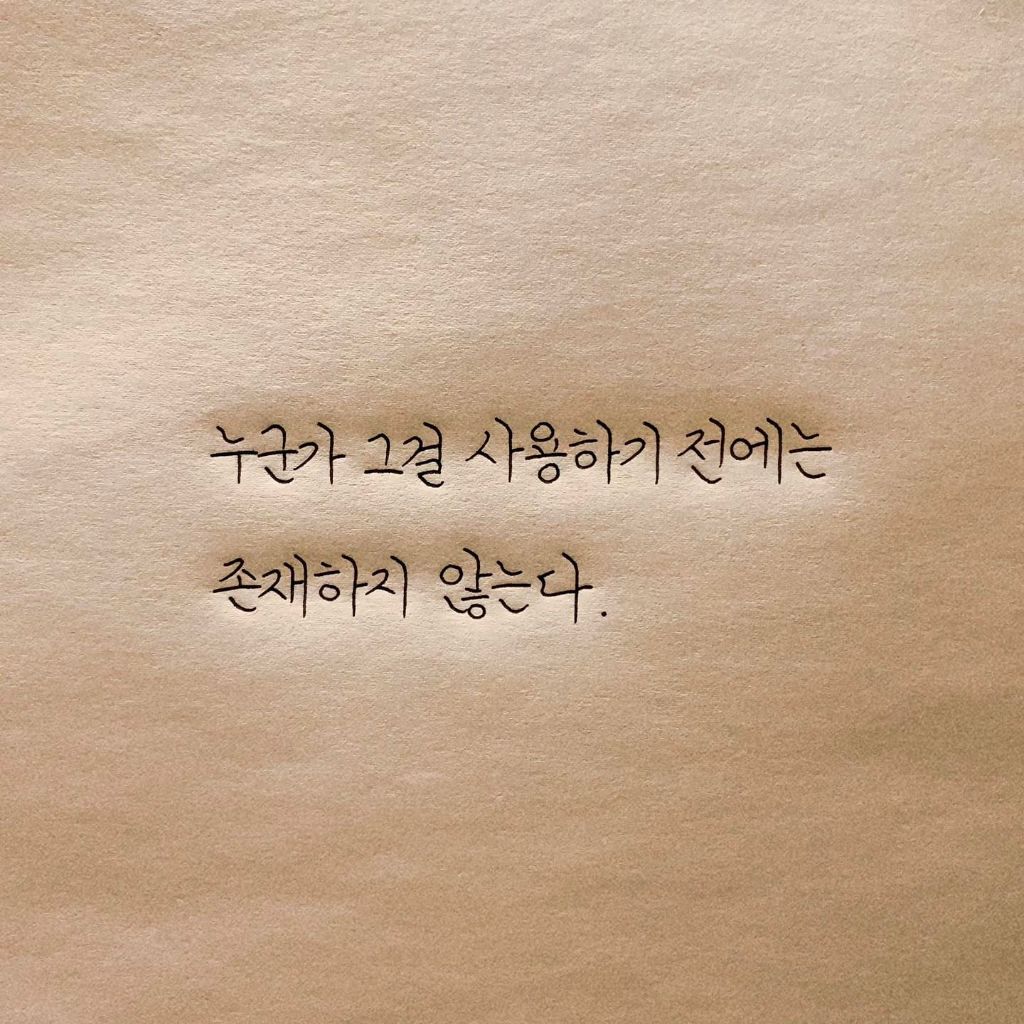 누군가 그걸 사용하기 전에는
존재하지 않는다.